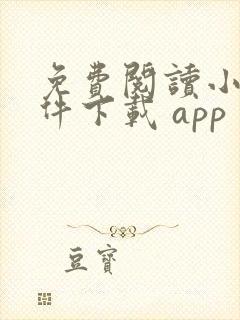 免費閱讀小
件下載 app
豆寶